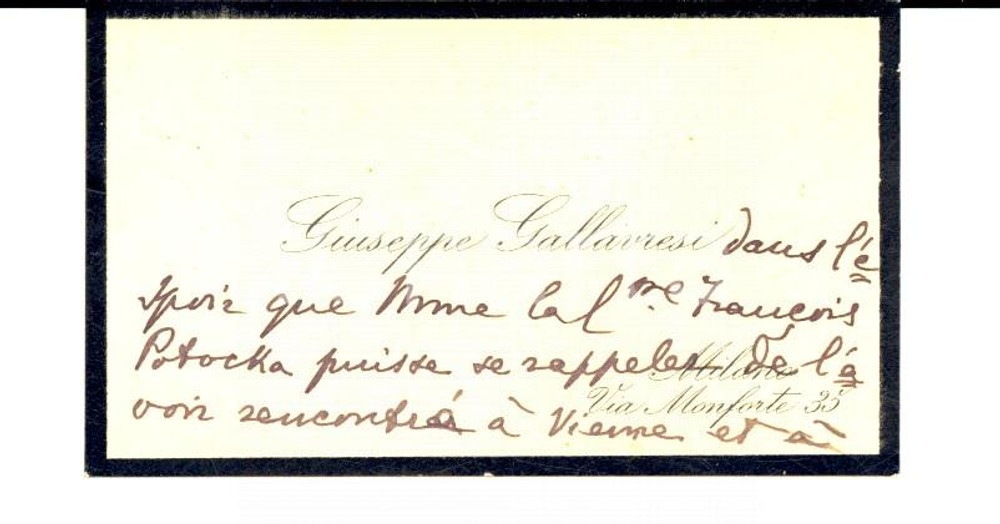 Giuseppe Gallavresi dans l'é
spoir que Mme la C.me François
Potocka puisse se rappeler de l'a
Milano
voir rencontré à Vienne et à
Via Monforte 33